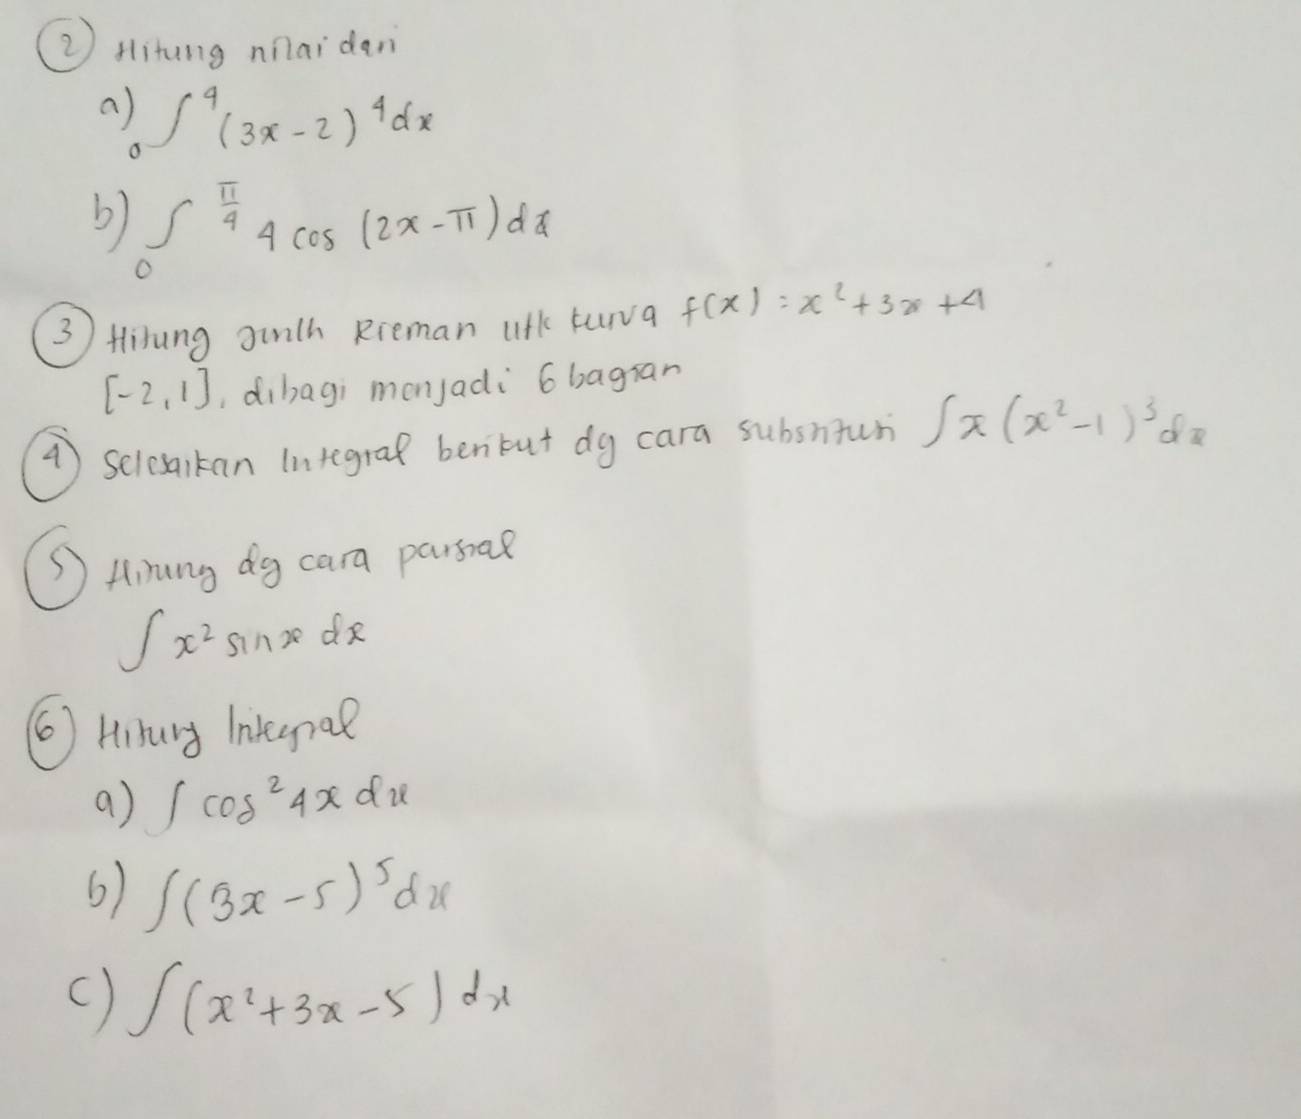 2) Hitung nilai dari
a) ₀∫⁴ (3x - 2)⁴ dx
b) ₀∫^(π/4) 4 cos (2x - π) dx
3) Hitung jmlh Rieman utk kurva f(x) = x² + 3x + 4
[-2, 1], dibagi menjadi 6 bagian
4) Selesaikan Integral berikut dg cara substitusi ∫ x (x² - 1)³ dx
5) Hitung dg cara parsial
∫ x² sin x dx
6) Hitung Integral
a) ∫ cos² 4x dx
b) ∫ (3x - 5)⁵ dx
c) ∫ (x² + 3x - 5) dx